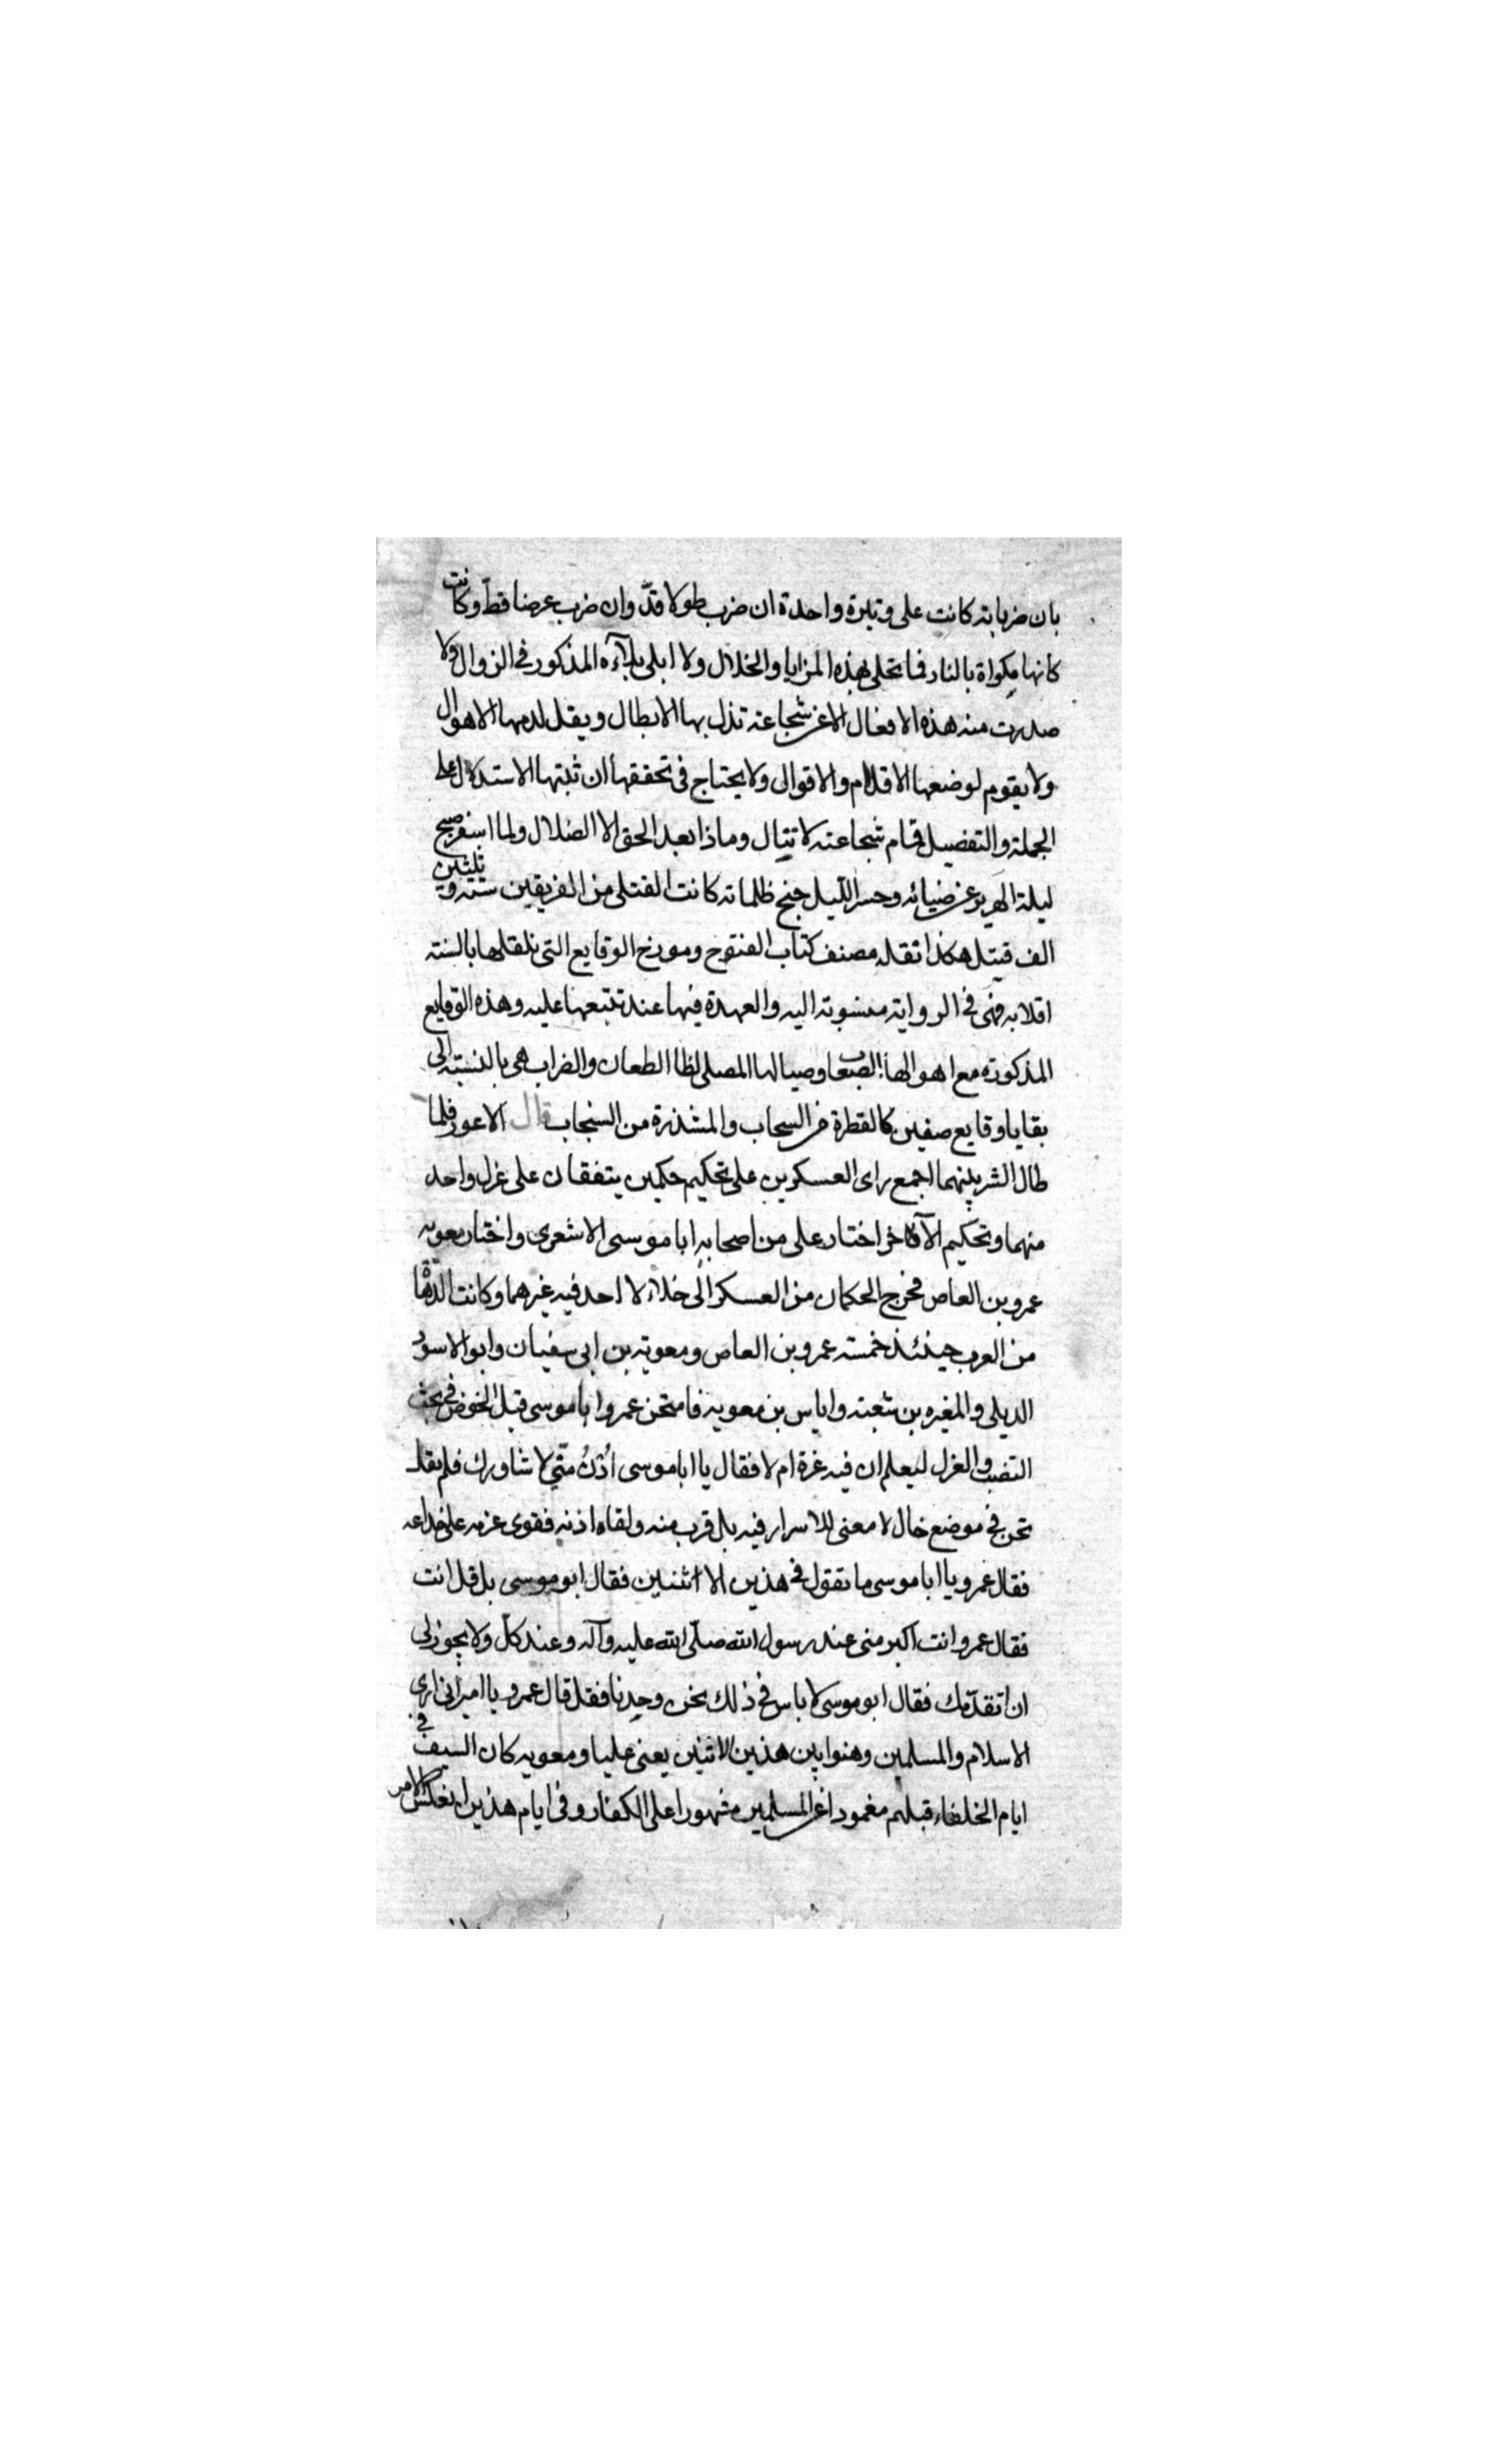 بان ضرباته كانت على وتيرة واحدة ان ضرب طولا قدّ وان ضرب عرضا قطّ وكانت
كانها مكواة بالنار فما تحلى بهذه المزايا والخلال ولا ابلى بلآءه المذكور في النزوال ولا
صدرت منه هذه الافعال الا عن شجاعته تذل بها الابطال ويقل لديها الاهوال
ولا يقوم لوضعها الاقلام والاقوال ولا يحتاج فى تحققها ان ثبتها الاستدلال على
الجملة والتفصيل فمقام شجاعته لا تنال وماذا بعد الحق الا الضلال ولما اسفر صبح
ليلة الهرير عن ضيائه وحسر الليل جنح ظلماته كانت القتلى من الفريقين ستة وثلثين
الف قتيل هكذا نقله مصنف كتاب الفتوح ومورخ الوقايع التى نلقلها بالسنة
اقلابه فهى في الرواية منسوبة اليه والعهدة فيها عند تتبعها عليه وهذه الوقايع
المذكورة مع اهوالها الصعاب وصيالها المصلى لظا الطعان والضراب هى بالنسبة الى
بقايا وقايع صفين كالقطرة من السحاب والشذرة من السنجاب قال الاعور فلما
طال الشر بينهما اجمع راى العسكرين على تحكيم حكمين يتفقان على عزل واحد
منهما وتحكيم الآخر اختار على من اصحابه ابا موسى الاشعرى واختار معويه
عمرو بن العاص فخرج الحكمان من العسكر الى خلاء لا احد فيه غيرهما وكانت الدهاة
من العرب حينئذ خمسة عمرو بن العاص ومعوية بن ابى سفيان وابو الاسود
الديلى والمغيره بن شعبة واياس بن معويه فامتحن عمرو ابا موسى قبل الخوض في بحث
النصب والعزل ليعلم ان فيه غرة ام لا فقال يا ابا موسى اُدْنُ منّي لاشاورك فلم يقل
نحن في موضع خال لا معنى للاسرار فيه بل قرب منه ولقاه اذنه فقوى عزمه على خداعه
فقال عمرو يا ابا موسى ما تقول في هذين الاثنين فقال ابو موسى بل قل انت
فقال عمرو انت اكبر منى عند رسول الله صلّى الله عليه وآله وعند كلّ ولا يجوز لى
ان اتقدّمك فقال ابو موسى لا باس في ذلك نحن وحدنا فقد قال عمرو يا امير انى ارى
الاسلام والمسلمين وهنوا بين هذين الاثنين يعنى عليا ومعويه كان السيف في
ايام الخلفاء قبلهم مغمودا عن المسلمين مشهورا على الكفار وفى ايام هذين انعكس الامر